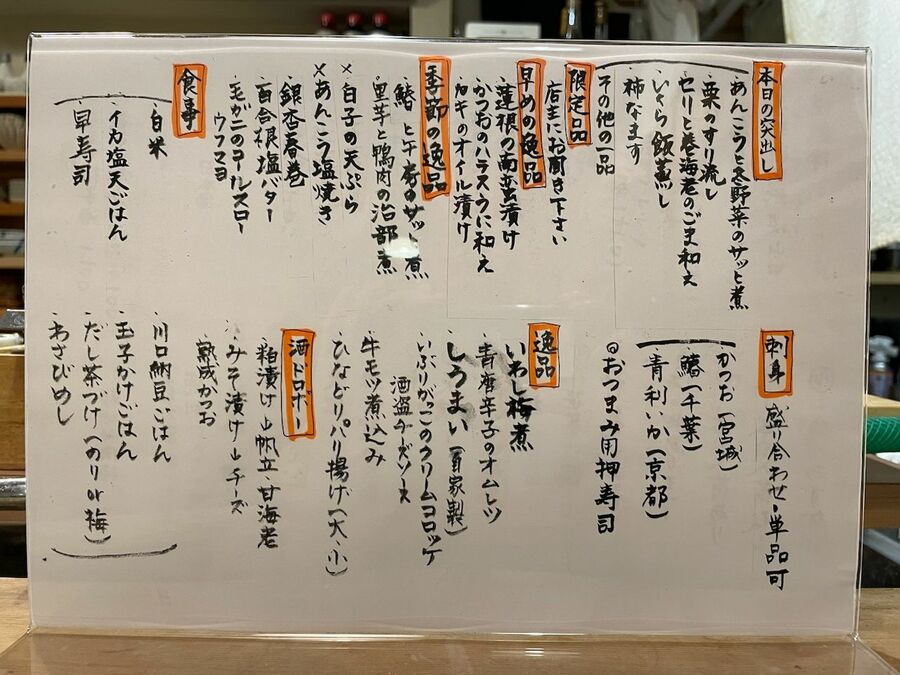 本日の突出し
・あんこうと冬野菜のサッと煮
・栗のすり流し
・セリと巻海老のごま和え
・いくら飯蒸し
・柿なます
その他の一品
限定品
店主にお聞き下さい
早めの逸品
・蓮根の南蛮漬け
・かつおのハラスうに和え
・カキのオイル漬け
季節の逸品
・鰆と下仁田ネギのサッと煮
・里芋と鴨肉の治部煮
×白子の天ぷら
×あんこう塩焼き
・銀杏春巻
・百合根塩バター
・毛ガニのコールスロー
ウフマヨ
食事
・白米
・イカ塩天ごはん
・早寿司
刺身
盛り合わせ・単品可
・かつお(宮城)
・鰆(千葉)
・青利いか(京都)
◎おつまみ用押寿司
逸品
・いわし梅煮
・青海辛子のオムレツ
・しうまい(自家製)
・いぶりがっこのクリームコロッケ
酒盗チーズソース
・牛モツ煮込み
・ひなどりパリ揚げ(大、小)
酒ドロボー
・粕漬け→帆立・甘海老
・みそ漬け→チーズ
・熟成かつお
・川口納豆ごはん
・玉子かけごはん
・だし茶づけ(のりor梅)
・わさびめし